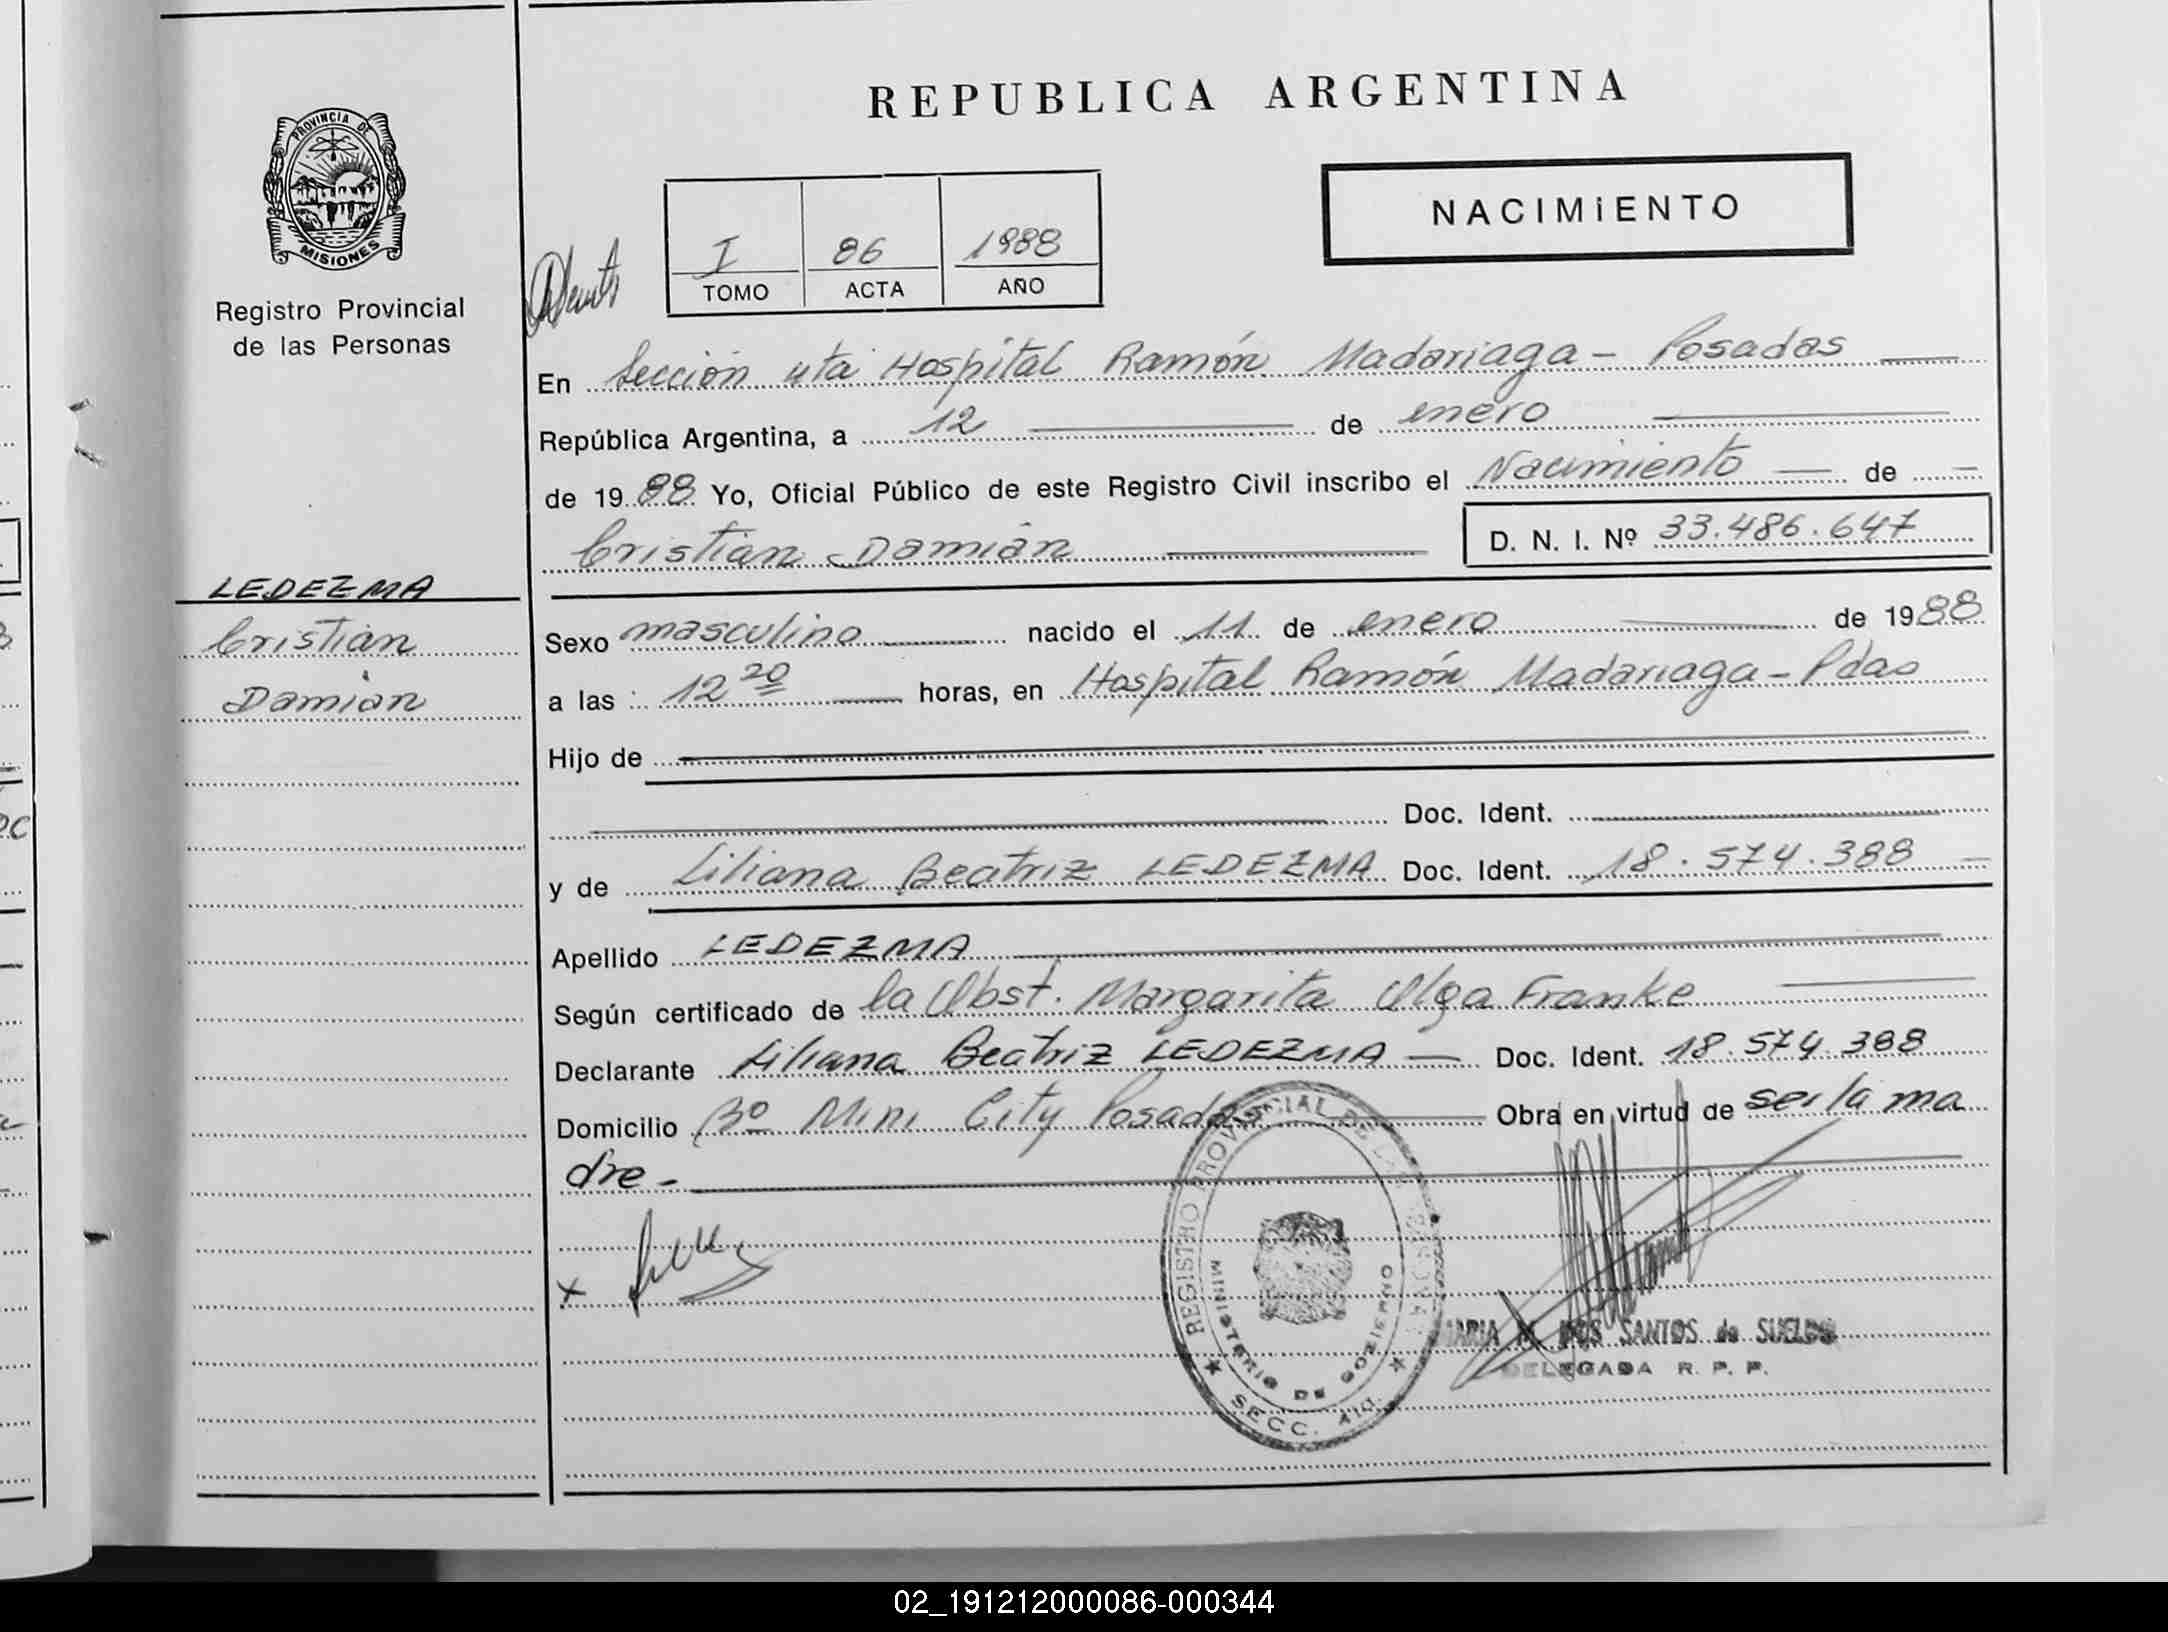 REPUBLICA ARGENTINA
PROVINCIA DE
MISIONES
Registro Provincial
de las Personas
NACIMIENTO
I 86 1988
TOMO ACTA AÑO
En Sección 4ta Hospital Ramón Madariaga - Posadas
República Argentina, a 12 de enero
de 1988 Yo, Oficial Público de este Registro Civil inscribo el Nacimiento de
Cristian Damián D. N. I. Nº 33.486.647
LEDEZMA
Cristian
Damián
Sexo masculino nacido el 11 de enero de 1988
a las : 12 20 horas, en Hospital Ramón Madariaga - Pdas
Hijo de
Doc. Ident.
y de Liliana Beatriz LEDEZMA Doc. Ident. 18.574.388
Apellido LEDEZMA
Según certificado de la Obst. Margarita Olga Franke
Declarante Liliana Beatriz LEDEZMA Doc. Ident. 18.574.388
Domicilio Bº Mini City Posadas Obra en virtud de ser la ma
dre -
REGISTRO PROVINCIAL DE LAS
MINISTERIO DE GOBIERNO
SECC. 4ta.
MARIA M. DOS SANTOS de SUELDO
DELEGADA R. P. P.
02_191212000086-000344